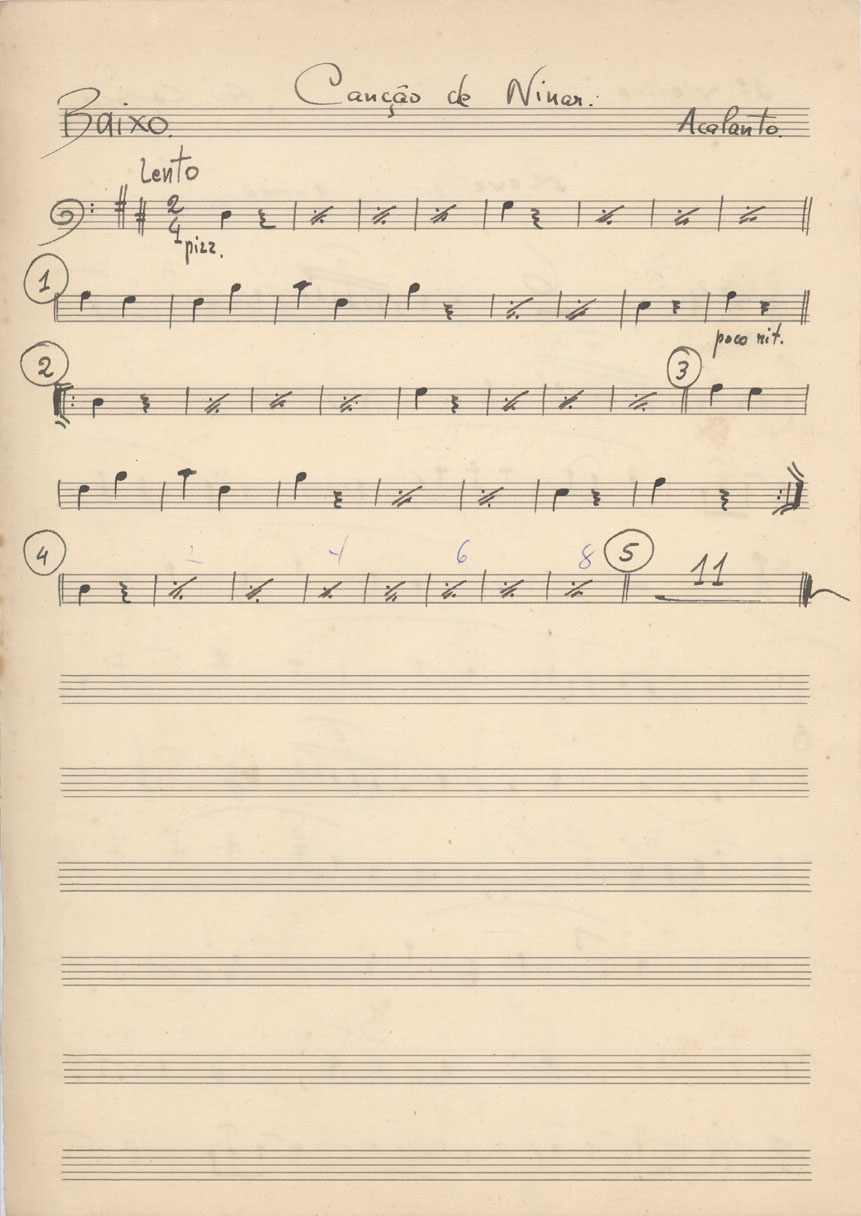 Canção de Ninar.
Baixo.
Acalanto.
Lento
2
4
pizz.
1
poco rit.
2
3
4
2
4
6
8
5
11